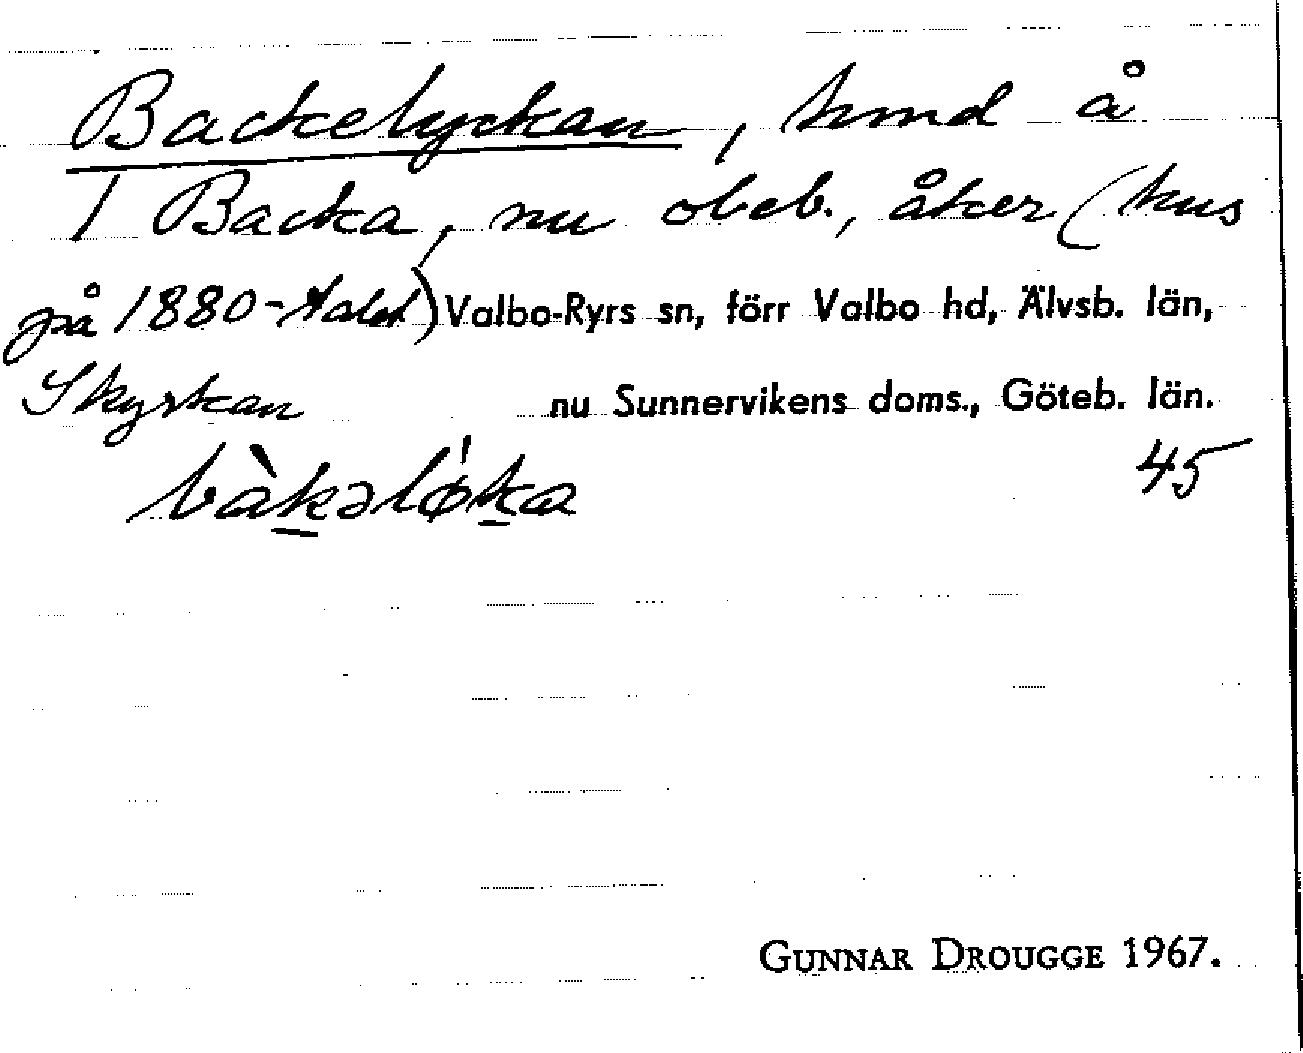 Backelyckan, hmd å
1 Backa, nu obeb., åker (hus
på 1880-talet) Valbo-Ryrs sn, förr Valbo hd, Älvsb. län,
Skyrkan nu Sunnervikens doms., Göteb. län.
bàkəlø̍ka 45
GUNNAR DROUGGE 1967.